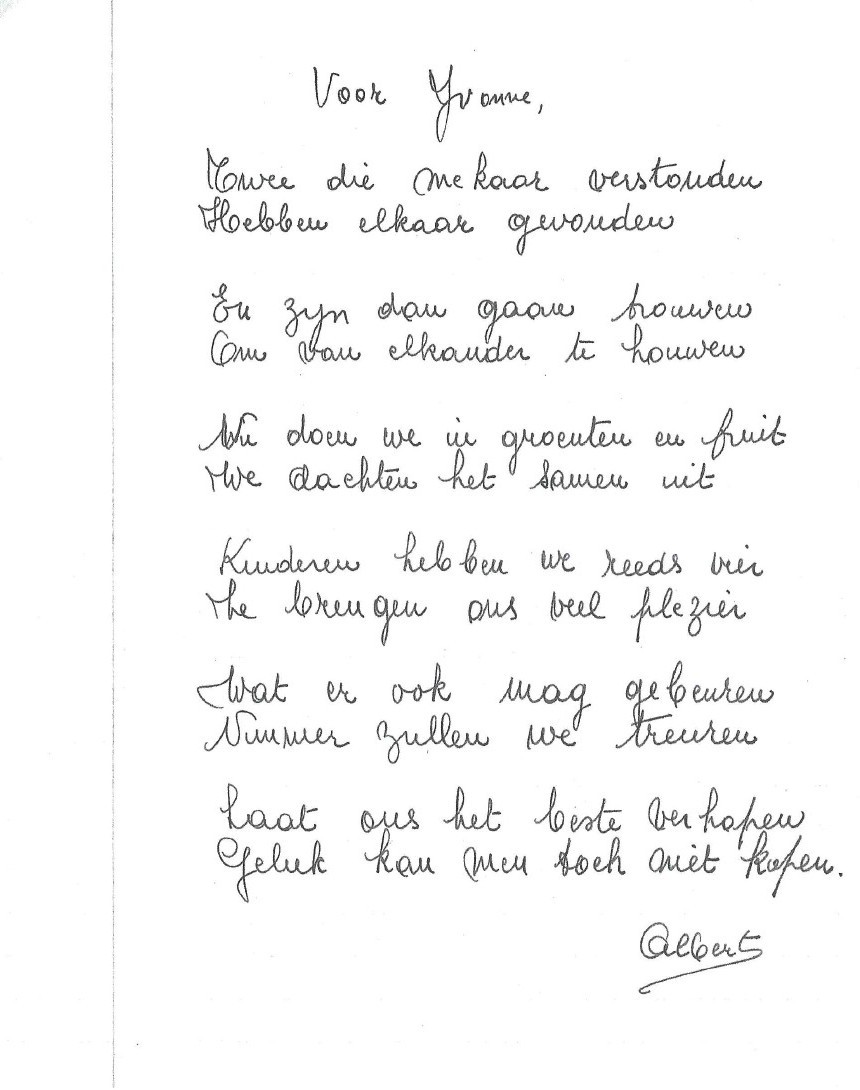 Voor Yvonne,
Twee die mekaar verstonden
Hebben elkaar gevonden
En zyn dan gaan trouwen
Om van elkander te houwen
Nu doen we in groenten en fruit
We dachten het samen uit
Kinderen hebben we reeds vier
Ze brengen ons veel plezier
Wat er ook mag gebeuren
Nimmer zullen we treuren
Laat ons het beste verhopen
Geluk kan men toch niet kopen.
Albert